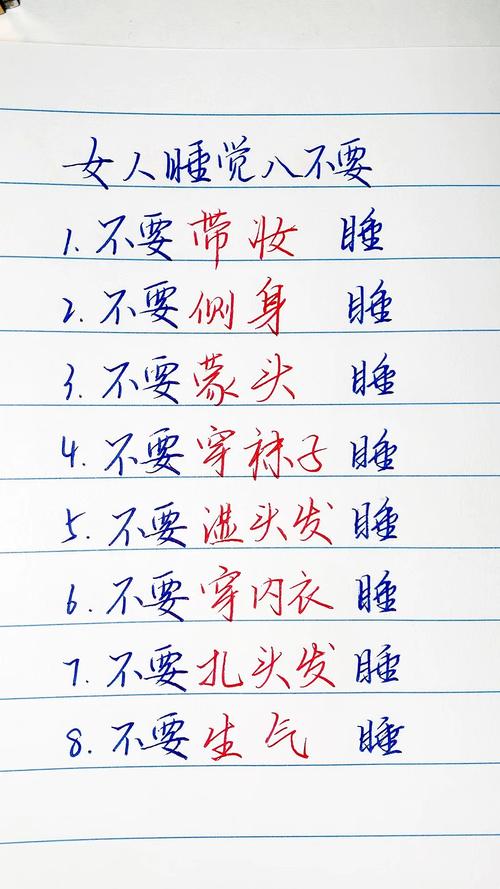 女人睡觉八不要
1. 不要带妆 睡
2. 不要侧身 睡
3. 不要蒙头 睡
4. 不要穿袜子睡
5. 不要湿头发睡
6. 不要穿内衣睡
7. 不要扎头发睡
8. 不要生气 睡